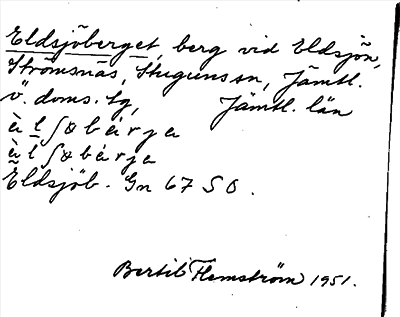 Eldsjöberget, berg vid Eldsjön,
Strömsnäs, Stuguns sn, Jämtl.
v. doms. tg, Jämtl. län
è l ʃ ø b æ̀ r j a
è l ʃ ø b æ̀ r j a
Eldsjöb. Gn 67 S O.
Bertil Flemström 1951.